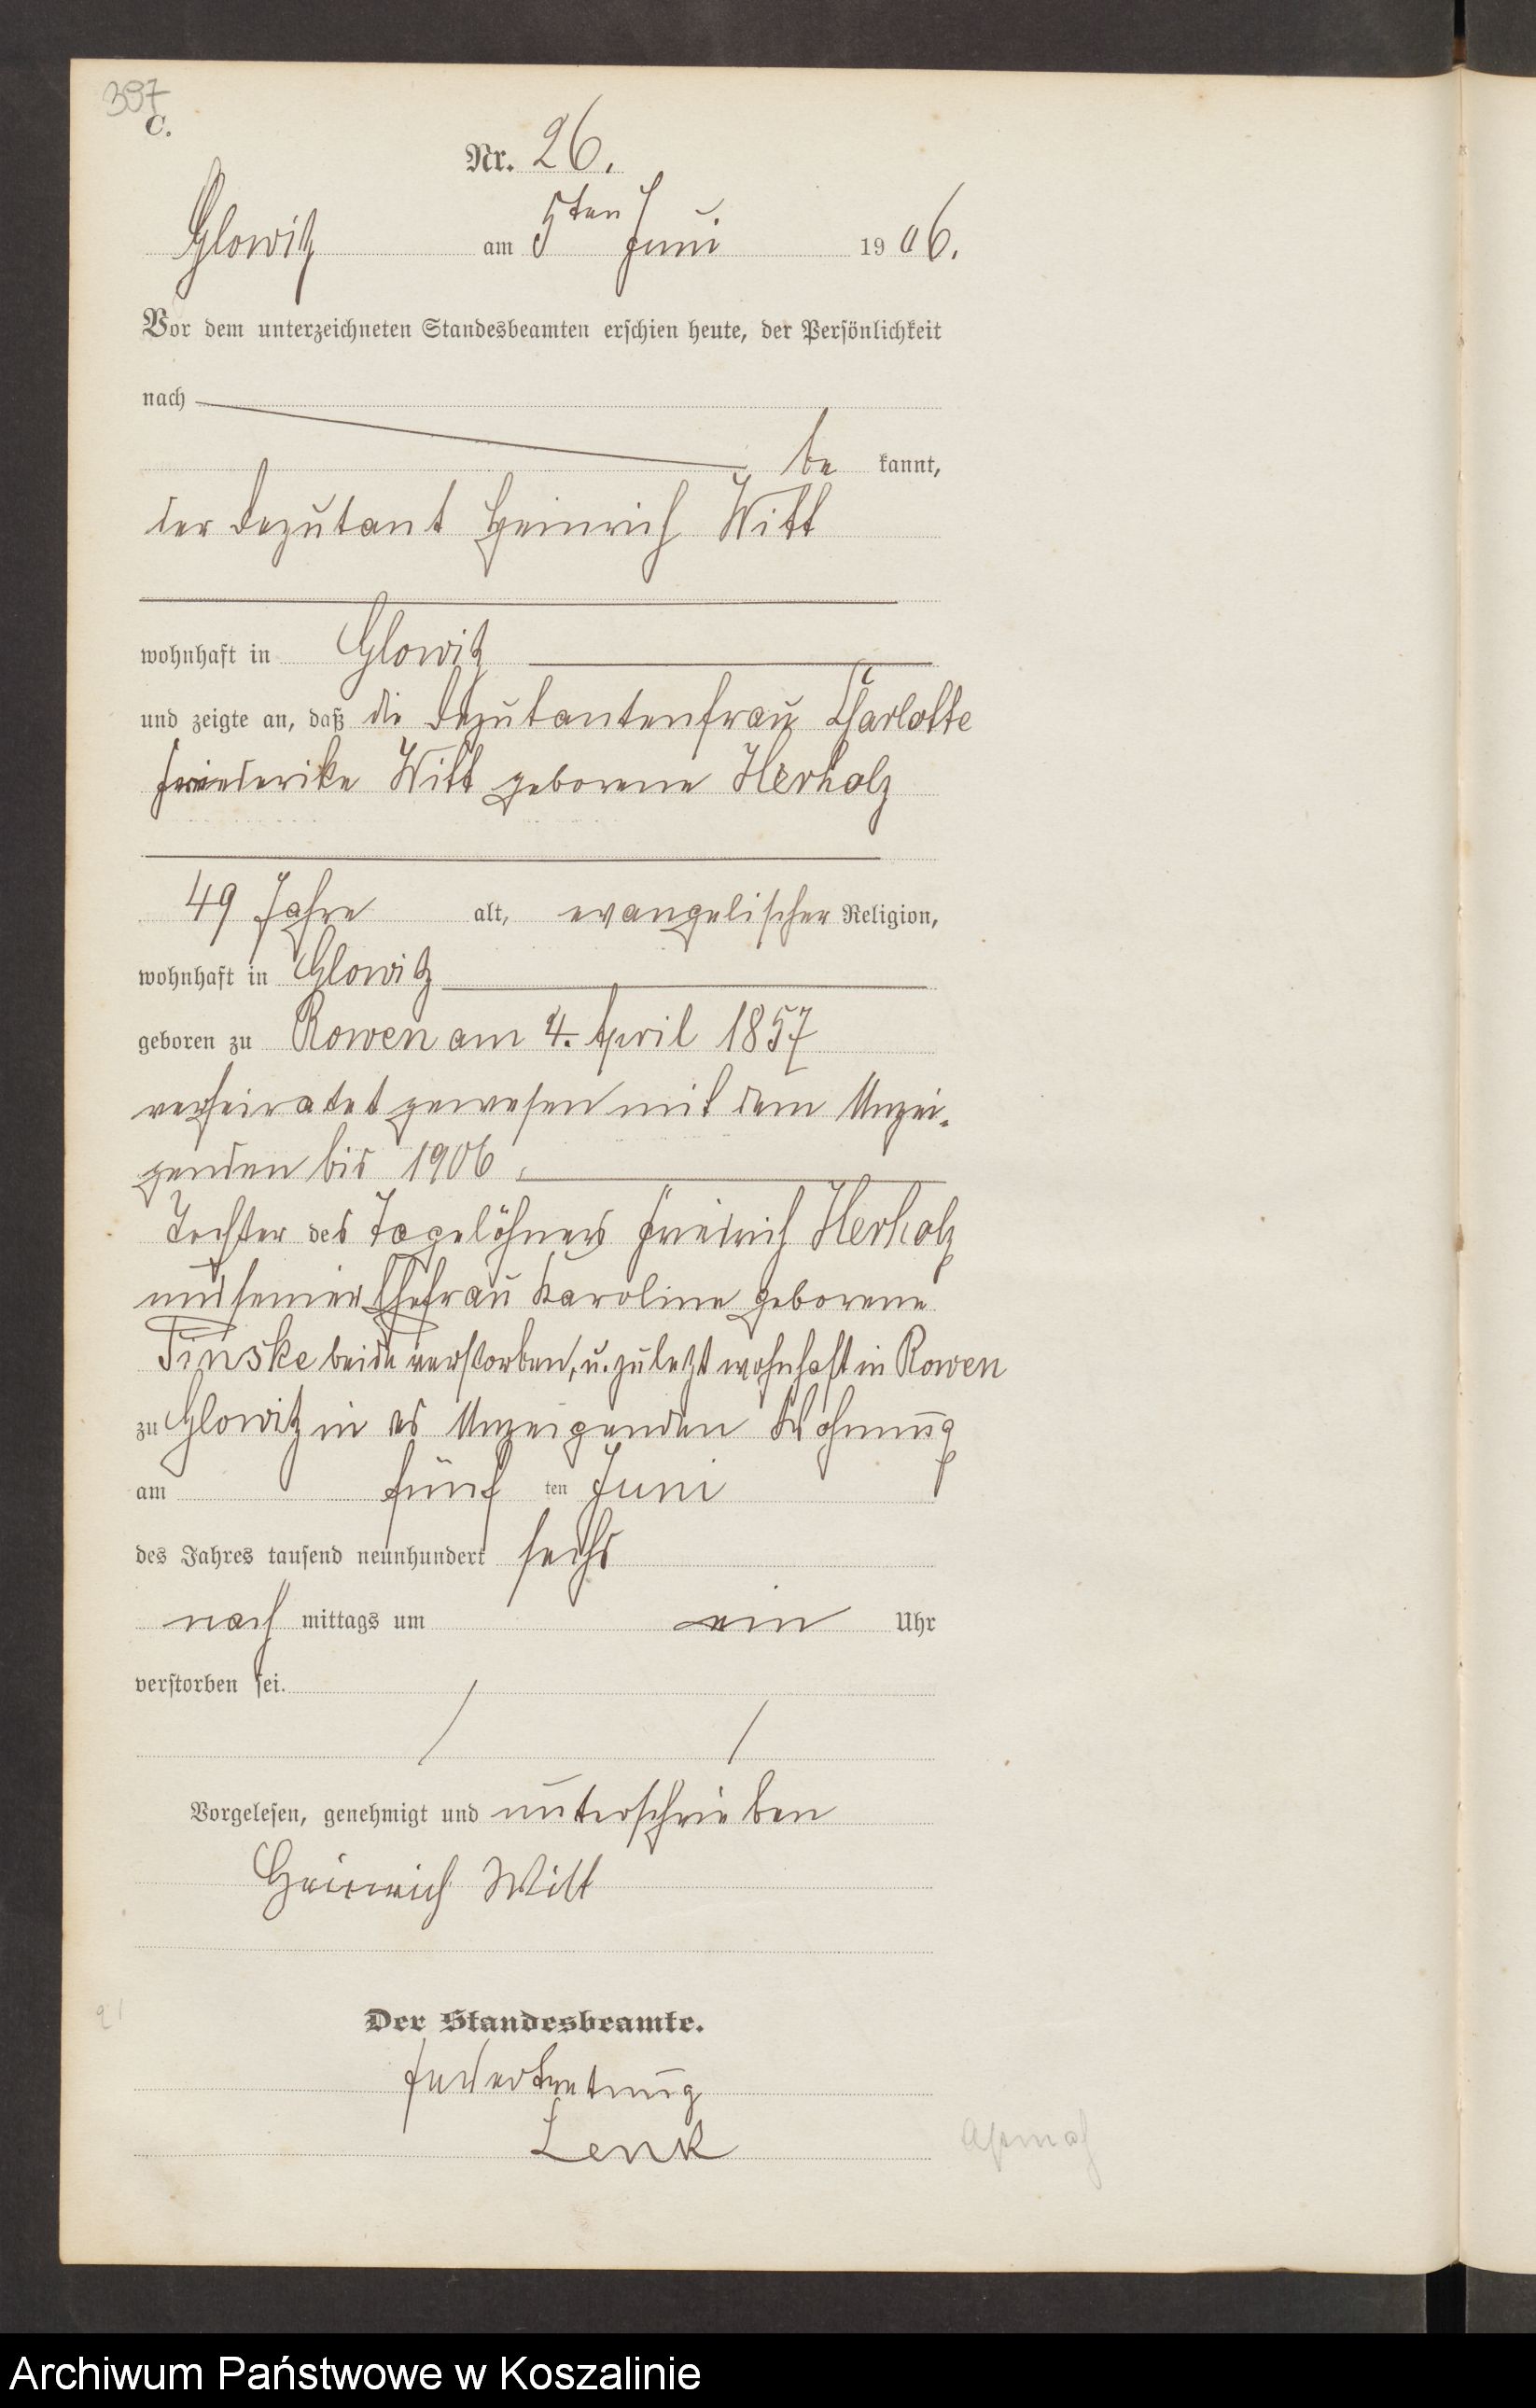 397
C.
Nr. 26.
Glowitz am 5ten Juni 1906.
Vor dem unterzeichneten Standesbeamten erschien heute, der Persönlichkeit
nach
be kannt,
der Deputant Heinrich Witt
wohnhaft in Glowitz
und zeigte an, daß die Deputantenfrau Charlotte
Friederike Witt geborene Herholz
49 Jahre alt, evangelischer Religion,
wohnhaft in Glowitz
geboren zu Rowen am 4. April 1857
verheiratet gewesen mit dem Anzei-
genden bis 1906,
Tochter des Tagelöhners Friedrich Herholz
und seiner Ehefrau Karoline geborene
beide verstorben, u. zuletzt wohnhaft in Rowen
zu Glowitz in des Anzeigenden Wohnung
am fünf ten Juni
des Jahres tausend neunhundert sechs
nach mittags um ein Uhr
verstorben sei.
Vorgelesen, genehmigt und unterschrieben
Heinrich Witt
Der Standesbeamte.
In Vertretung
Lenk
Archiwum Państwowe w Koszalinie